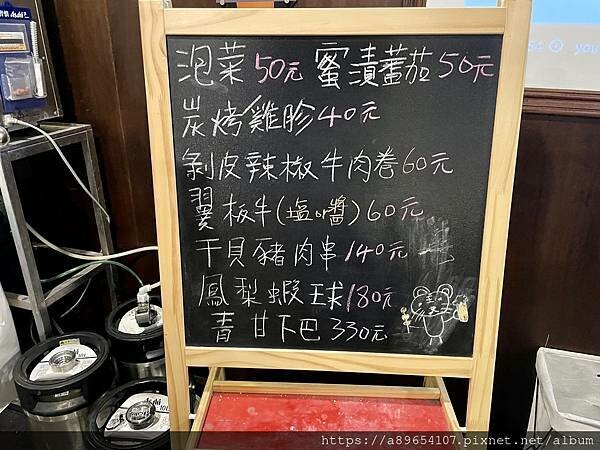 泡菜50元 蜜漬蕃茄50元
炭烤雞胗40元
剝皮辣椒牛肉卷60元
翼板牛(塩or醬)60元
干貝豬肉串140元
鳳梨蝦球180元
青甘下巴330元
Asahi
you
https://a89654107.pixnet.net/album